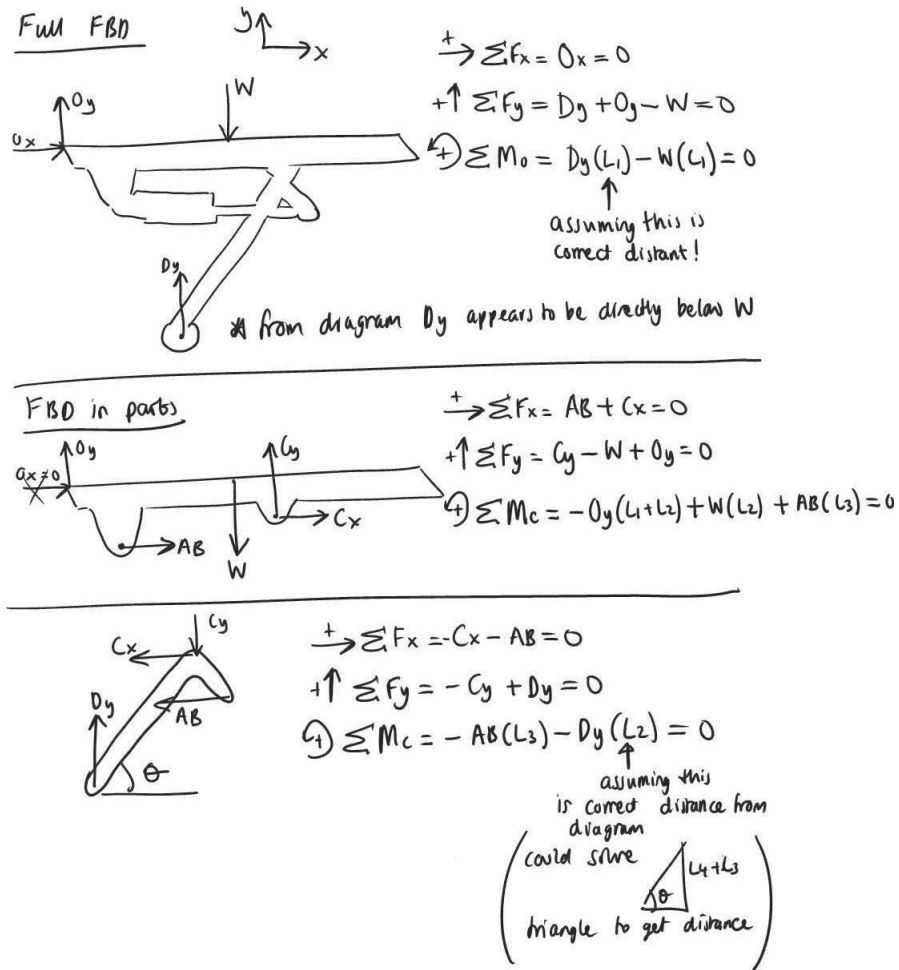 Full FBD
y
x
W
Oy
Ox
Dy
+→ ΣFx = Ox = 0
+↑ ΣFy = Dy + Oy - W = 0
+ ΣMo = Dy(L1) - W(L1) = 0
assuming this is
correct distant!
* from diagram Dy appears to be directly below W
FBD in parts
Oy
Ox≠0
Cy
Cx
AB
W
+→ ΣFx = AB + Cx = 0
+↑ ΣFy = Cy - W + Oy = 0
+ ΣMc = -Oy(L1+L2) + W(L2) + AB(L3) = 0
Cy
Cx
Dy
AB
θ
+→ ΣFx = -Cx - AB = 0
+↑ ΣFy = - Cy + Dy = 0
+ ΣMc = - AB(L3) - Dy(L2) = 0
assuming this
is correct distance from
diagram
could solve
L4+L3
θ
triangle to get distance